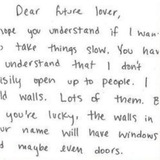 Dear future lover,
hope you understand if I wan
o take things slow. You hav
understand that I don't
asily open up to people. I
ld walls. Lots of them. B
you're lucky, the walls in
ur name will have windows
d maybe even doors.